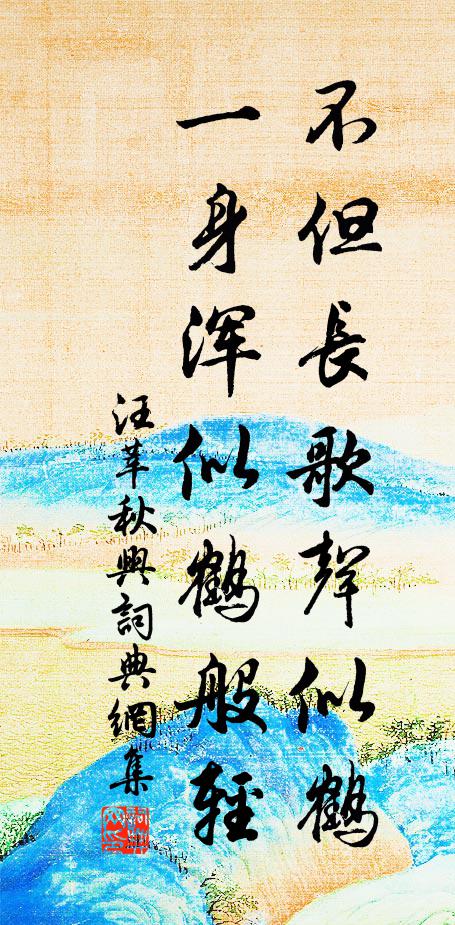 不但長歌聲似鶴
一身渾似鶴般輕
汪莘秋興詞典網集